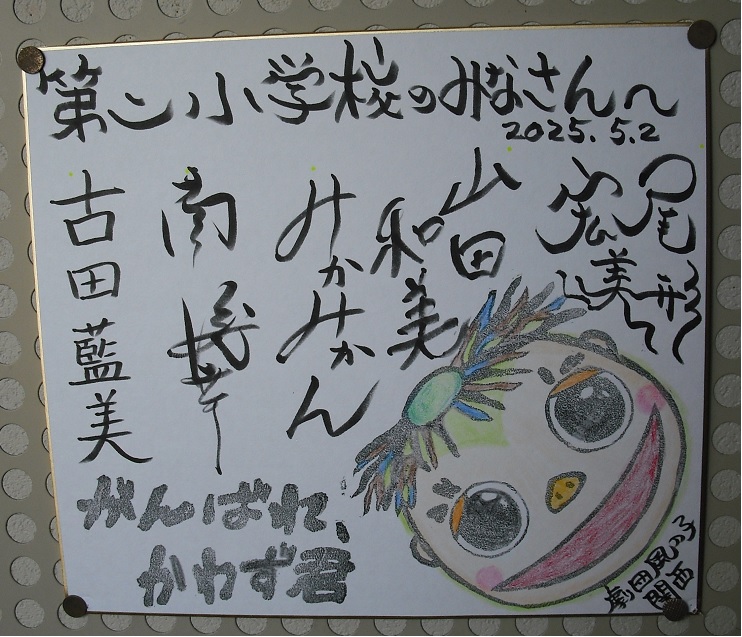 第二小学校のみなさんへ
2025.5.2
尾形
宏美
山田
和美
みかみかん
南
古田藍美
がんばれ、
かわず君
劇団風の子
関西